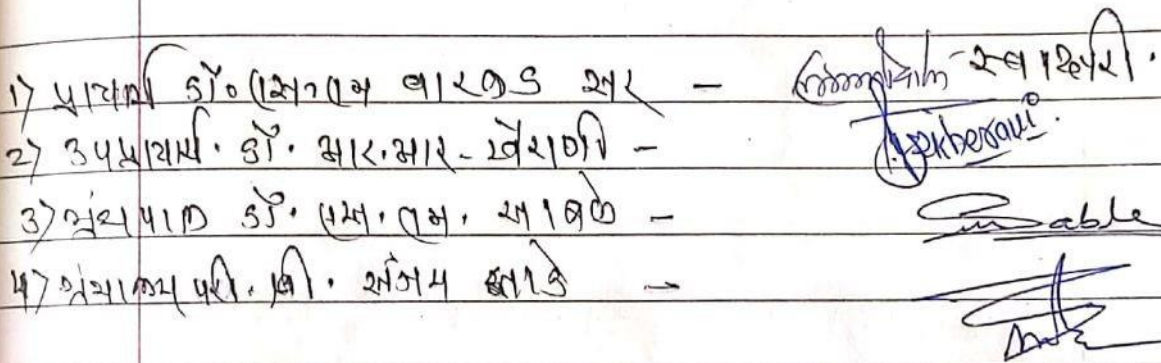 1) प्राचार्य डॉ. एस.एम वारकड सर - स्वाक्षरी.
2) उपप्राचार्य. डॉ. आर.आर. खेराणी -
3) ग्रंथपाल डॉ. एस. एम. साबळे - Sable
4) ग्रंथालय परी. श्री. संजय -